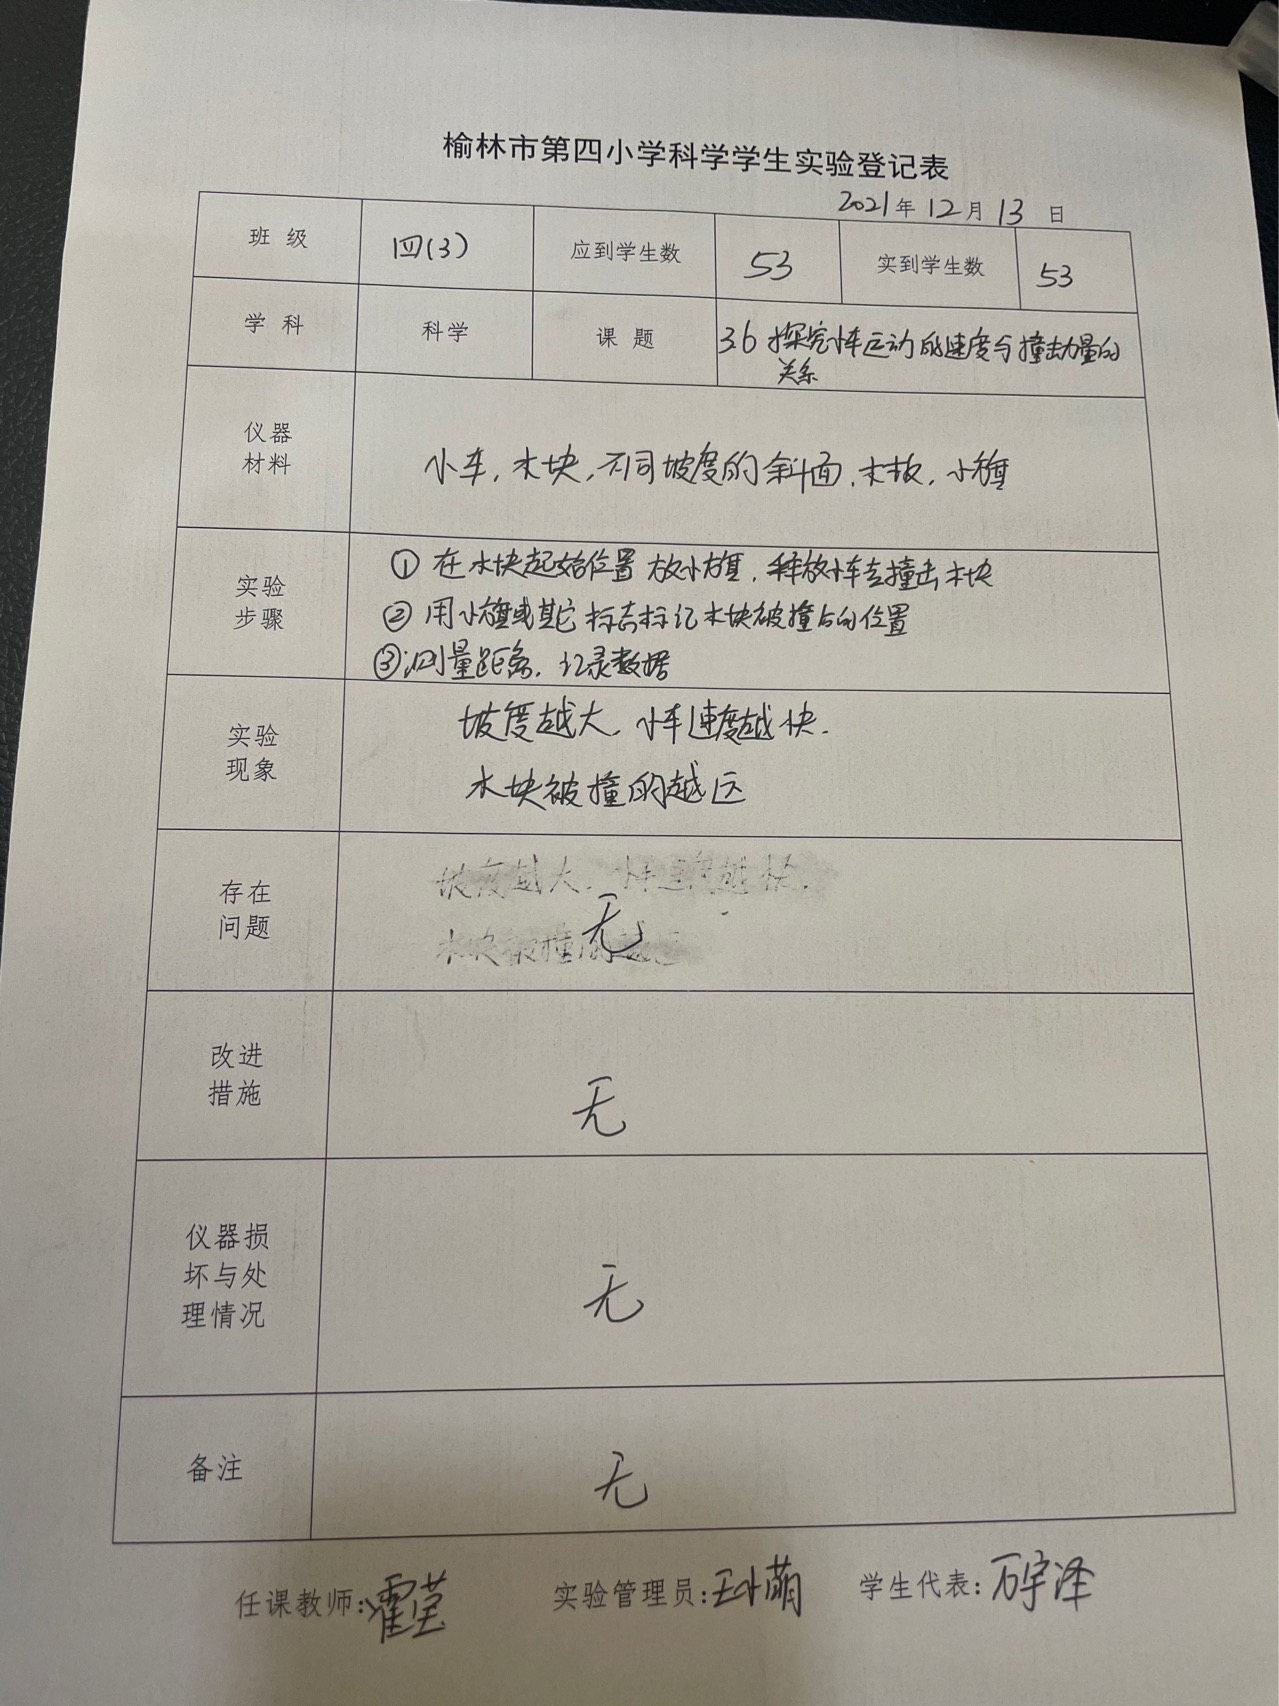 榆林市第四小学科学学生实验登记表
2021年12月13日
班 级 四(3) 应到学生数 53 实到学生数 53
学 科 科学 课 题 3.6 探究小车运动的速度与撞击力量的
关系
仪器
材料
小车,木块,不同坡度的斜面,木板,小旗
实验
步骤
① 在木块起始位置放小旗,释放小车去撞击木块
② 用小旗或其它标志标记木块被撞后的位置
③ 测量距离,记录数据
实验
现象
坡度越大,小车速度越快.
木块被撞的越远
存在
问题
坡度越大,小车速度越快.
无
木块被撞的越远
改进
措施
无
仪器损
坏与处
理情况
无
备注
无
任课教师:霍莹 实验管理员:王小萌 学生代表:万宇泽